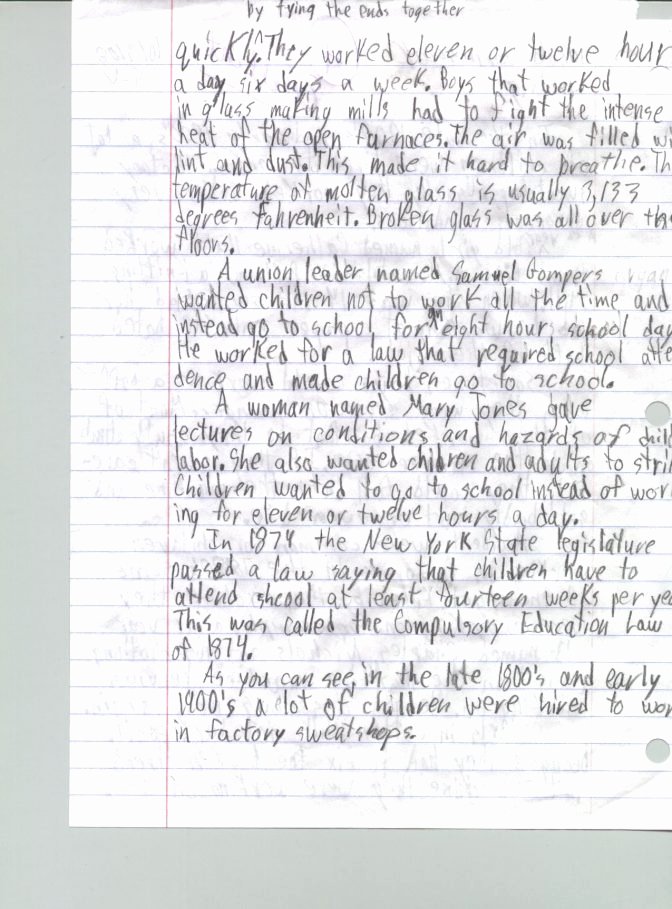 by tying the ends together
quickly^. They worked eleven or twelve hour
a day six days a week. Boys that worked
in glass making mills had to fight the intense
heat of the open furnaces. the air was filled wi
lint and dust. This made it hard to breathe. Th
temperature of molten glass is usually 3,133
degrees fahrenheit. Broken glass was all over the
floors.
A union leader named Samuel Gompers
wanted children not to work all the time and
instead go to school for an eight hour school day
He worked for a law that required school atte
dence and made children go to school.
A woman named Mary Jones gave
lectures on conditions and hazards of child
labor. She also wanted children and adults to stri
Children wanted to go to school instead of wor
ing for eleven or twelve hours a day.
In 1874 the New York State legislature
passed a law saying that children have to
attend shcool at least fourteen weeks per ye
This was called the Compulsory Education Law
of 1874.
As you can see, in the late 1800's and early
1900's a lot of children were hired to wor
in factory sweatshops.